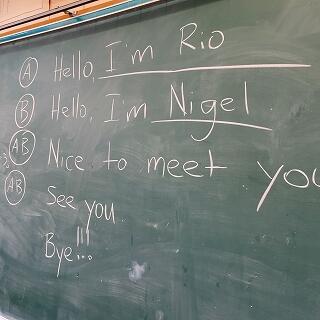 A Hello, I'm Rio
B Hello, I'm Nigel.
AB Nice to meet you
AB See you.
Bye!!!